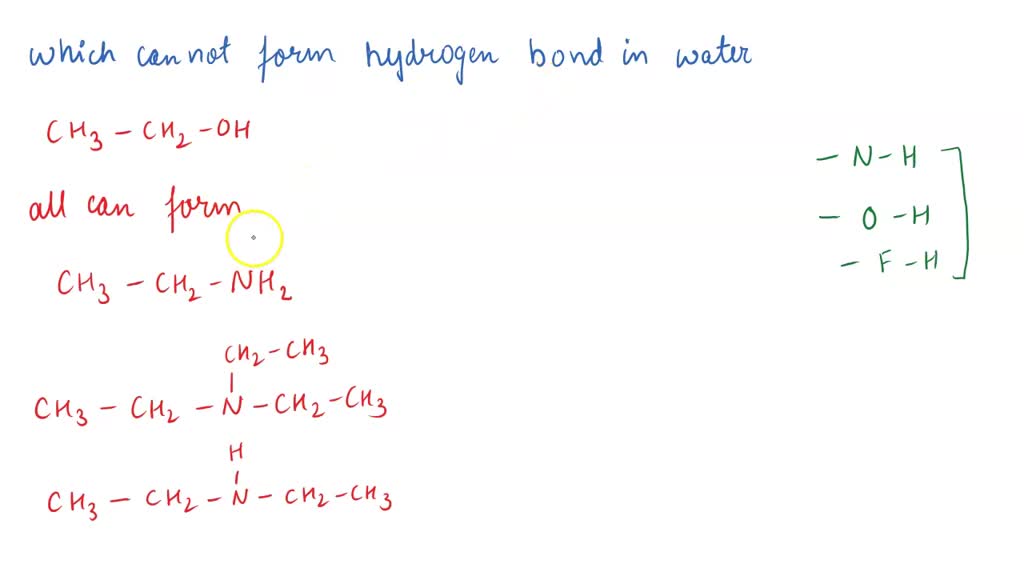 which cannot form hydrogen bond in water
CH3 - CH2 - OH
all can form
CH3 - CH2 - NH2
CH2 - CH3
|
CH3 - CH2 - N - CH2 - CH3
H
|
CH3 - CH2 - N - CH2 - CH3
- N - H
- O - H
- F - H